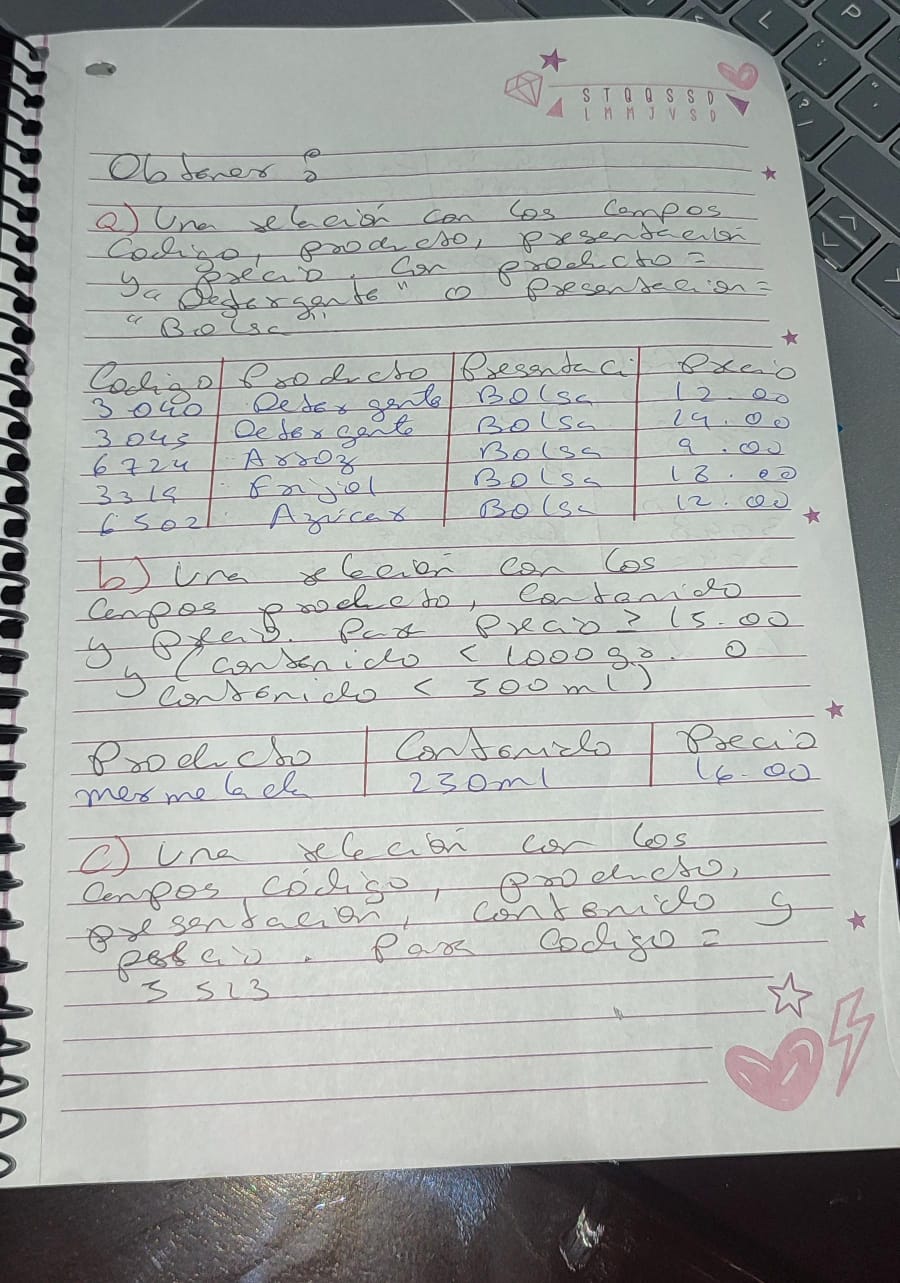 S T Q Q S S D
L M M J V S D
Obtener :
a) Una relación con los campos
Codigo, producto, presentación
y precio, con producto =
"Detergente" o presentación =
"Bolsa"
Codigo Producto Presentaci Precio
3040 Detergente Bolsa 12.00
3045 Detergente Bolsa 19.00
6724 Arroz Bolsa 9.00
3319 Frijol Bolsa 18.00
6502 Azúcar Bolsa 12.00
b) Una relación con los
campos producto, contenido
y precio. Para precio ≥ 15.00
y (contenido < 1000gr. o
contenido < 300ml)
Producto Contenido Precio
mermelada 230ml 16.00
c) Una relación con los
campos código, producto,
presentación, contenido y
precio. Para Codigo =
3513